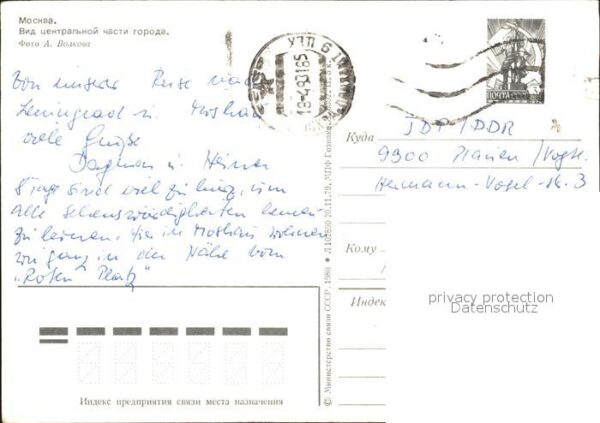 Москва.
Вид центральной части города.
Фото А. Волкова
Von unserer Reise nach
Leningrad u. Moskau
viele Grüße
Dagmar u. Heiner
8 Tage sind viel zu kurz, um
alle Sehenswürdigkeiten kennen
zu lernen. Hier in Moskau wohnen
wir ganz in der Nähe vom
„Roten Platz"
ПОЧТА СССР
Куда
DDR
9900 Plauen/Vogtl.
Hermann-Vogel-Str. 3
Кому
Индекс
privacy protection
Datenschutz
© Министерство связи СССР, 1980
20.11.79. МПФ Гознака
Индекс предприятия связи места назначения